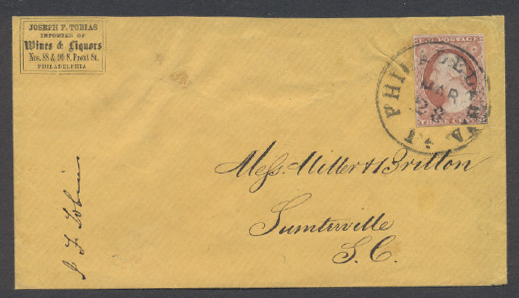 JOSEPH F. TOBIAS
IMPORTER OF
Wines & Liquors
Nos. 88 & 90 S. Front St.
PHILADELPHIA
U.S. POSTAGE
THREE CENTS
PHILADELPHIA Pa
MAR
28
Mess. Miller & Britton
Sumterville
S.C.
J. F. Tobias